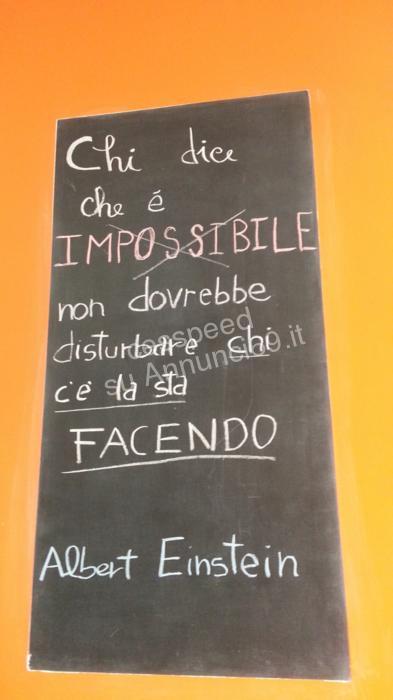 Chi dice
che é
IMPOSSIBILE
non dovrebbe
disturbare chi
c'è la sta
FACENDO
Albert Einstein
deaspeed
su Annunci69.it